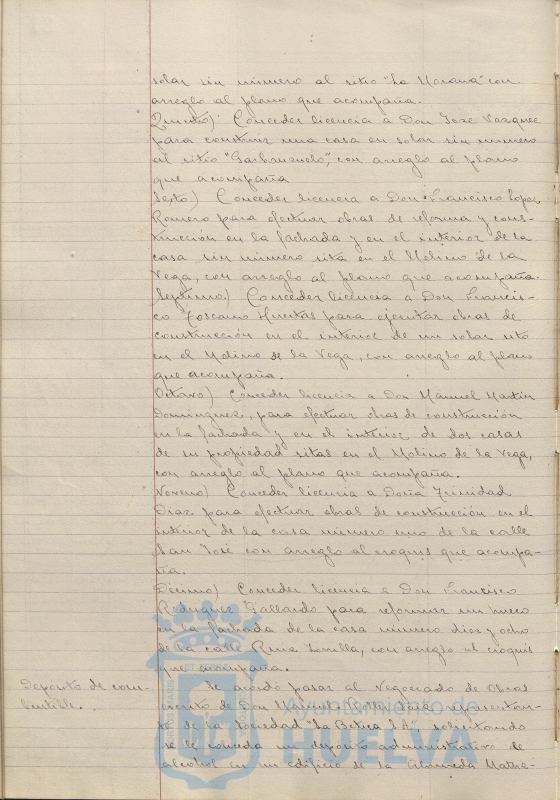 solar sin número al sitio "La Morana" con
arreglo al plano que acompaña.
Quinto) Conceder licencia a Don José Vazquez
para construir una casa en solar sin número
al sitio con arreglo al plano
que acompaña
Sexto) Conceder licencia a Don Francisco Lopez
Romero para efectuar obras de reforma y cons-
trucción en la fachada y en el interior de la
casa sin número sita en el Molino de la
Vega, con arreglo al plano que acompaña.
Septimo) Conceder licencia a Don Francis-
co Toscano Huertas para ejecutar obras de
construcción en el interior de un solar sito
en el Molino de la Vega, con arreglo al plano
que acompaña.
Octavo) Conceder licencia a Don Manuel Martin
Dominguez, para efectuar obras de construcción
en la fachada y en el interior de dos casas
de su propiedad sitas en el Molino de la Vega,
con arreglo al plano que acompaña.
Noveno) Conceder licencia a Doña Trinidad
Diaz para efectuar obras de construcción en el
interior de la casa número uno de la calle
San José con arreglo al croquis que acompa-
ña.
Décimo) Conceder licencia a Don Francisco
Rodriguez Gallardo para reformar un hueco
en la fachada de la casa número diez y ocho
de la calle Ruiz Zorrilla, con arreglo al croquis
que acompaña.
Depósito de com-
bustible.
Se acordó pasar al Negociado de Obras
escrito de Don Manuel representan-
te de la Sociedad "La Betica S.A", solicitando
se le conceda un deposito administrativo de
alcohol en un edificio de la Alameda
Ayuntamiento de
HUELVA